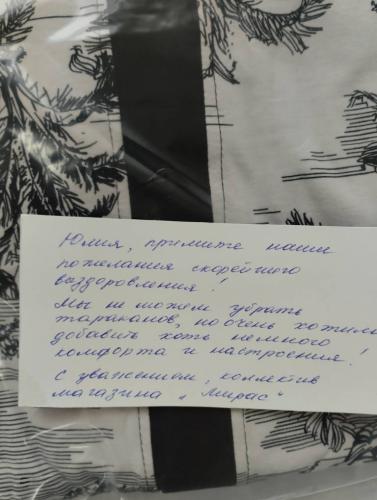 Юлия, примите наши
пожелания скорейшего
выздоровления!
Мы не можем убрать
тараканов, но очень хотим
добавить хоть немного
комфорта и настроения!
С уважением, коллектив
магазина „Мирас"